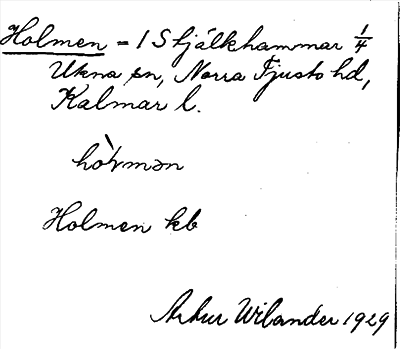 Holmen = 1 Stjälkhammar 1/4
Ukna sn, Norra Tjusts hd,
Kalmar l.
Holmen kb
Arthur Wilander 1929